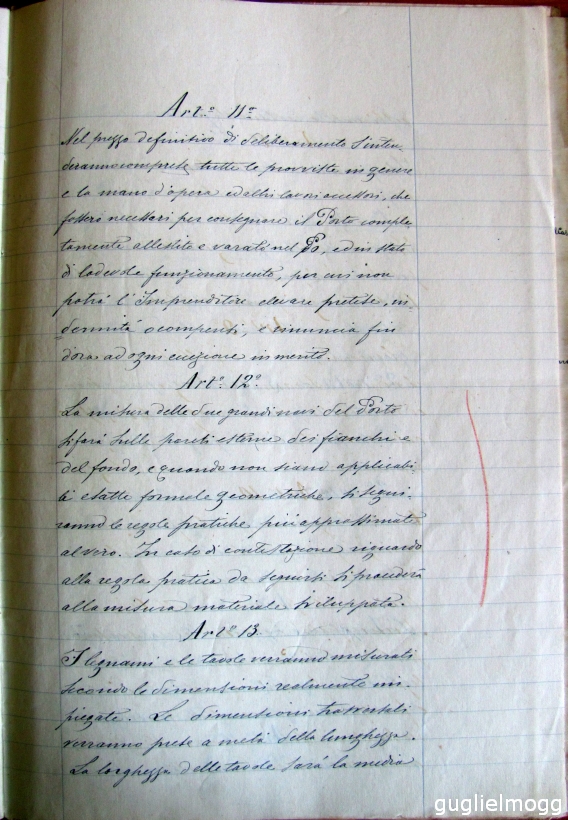 Art.º 11º
Nel prezzo definitivo di deliberamento s'inten-
deranno comprese tutte le provviste in genere
e la mano d'opera ed altri lavori accessori, che
fossero necessari per consegnare il Porto comple-
tamente allestito e varato nel Po, ed in stato
di lodevole funzionamento, per cui non
potrá l'Imprenditore elevare pretese, in-
dennitá o compensi, e rinuncia fin
d'ora ad ogni eccezione in merito.
Art.º 12º
La misura delle due grandi navi del Porto
si fará sulle pareti esterne dei fianchi e
del fondo, e quando non siano applicabi-
li esatte formole geometriche, si segui-
ranno le regole pratiche più approssimate
al vero. In caso di contestazione riguardo
alla regola pratica da seguirsi si procederá
alla misura materiale sviluppata.
Art.º 13.
I legnami e le tavole verranno misurati
secondo le dimensioni realmente im-
piegate. Le dimensioni trasversali
verranno prese a metá della lunghezza.
La larghezza delle tavole sará la media
guglielmogg